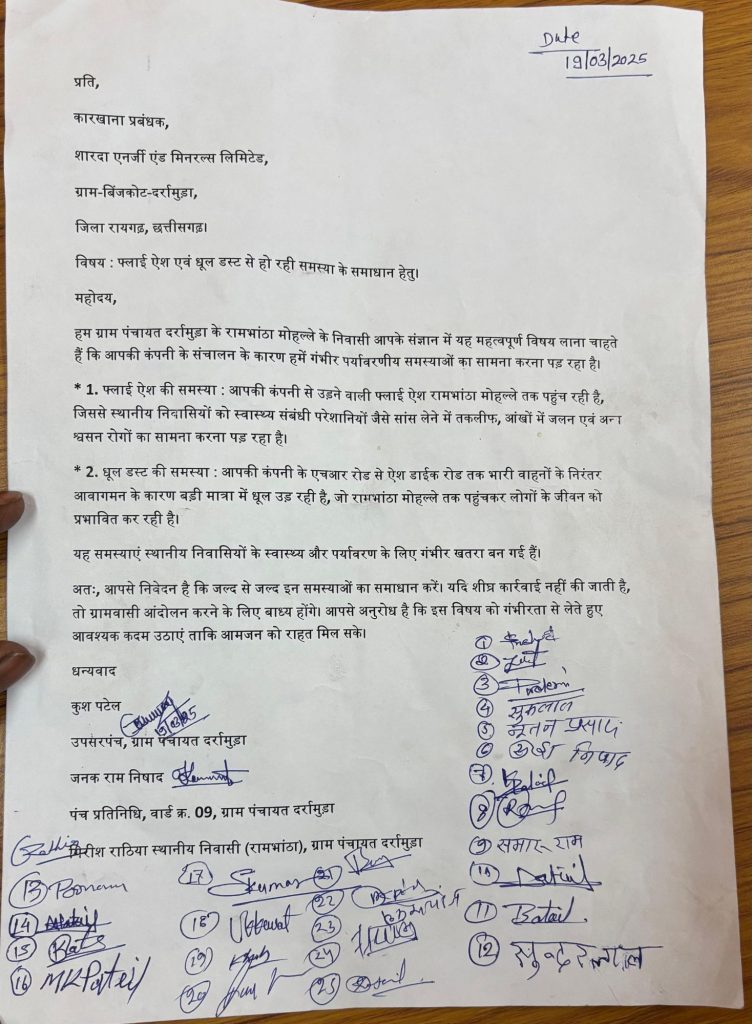 Date
19/03/2025
प्रति,
कारखाना प्रबंधक,
शारदा एनर्जी एंड मिनरल्स लिमिटेड,
ग्राम-बिंजकोट-दर्रामुड़ा,
जिला रायगढ़, छत्तीसगढ़।
विषय : फ्लाई ऐश एवं धूल डस्ट से हो रही समस्या के समाधान हेतु।
महोदय,
हम ग्राम पंचायत दर्रामुड़ा के रामभांठा मोहल्ले के निवासी आपके संज्ञान में यह महत्वपूर्ण विषय लाना चाहते
हैं कि आपकी कंपनी के संचालन के कारण हमें गंभीर पर्यावरणीय समस्याओं का सामना करना पड़ रहा है।
* 1. फ्लाई ऐश की समस्या : आपकी कंपनी से उड़ने वाली फ्लाई ऐश रामभांठा मोहल्ले तक पहुंच रही है,
जिससे स्थानीय निवासियों को स्वास्थ्य संबंधी परेशानियों जैसे सांस लेने में तकलीफ, आंखों में जलन एवं अन्य
श्वसन रोगों का सामना करना पड़ रहा है।
* 2. धूल डस्ट की समस्या : आपकी कंपनी के एचआर रोड से ऐश डाईक रोड तक भारी वाहनों के निरंतर
आवागमन के कारण बड़ी मात्रा में धूल उड़ रही है, जो रामभांठा मोहल्ले तक पहुंचकर लोगों के जीवन को
प्रभावित कर रही है।
यह समस्याएं स्थानीय निवासियों के स्वास्थ्य और पर्यावरण के लिए गंभीर खतरा बन गई हैं।
अतः, आपसे निवेदन है कि जल्द से जल्द इन समस्याओं का समाधान करें। यदि शीघ्र कार्रवाई नहीं की जाती है,
तो ग्रामवासी आंदोलन करने के लिए बाध्य होंगे। आपसे अनुरोध है कि इस विषय को गंभीरता से लेते हुए
आवश्यक कदम उठाएं ताकि आमजन को राहत मिल सके।
धन्यवाद
कुश पटेल
19/03/25
उपसरपंच, ग्राम पंचायत दर्रामुड़ा
जनक राम निषाद
पंच प्रतिनिधि, वार्ड क्र. 09, ग्राम पंचायत दर्रामुड़ा
गिरीश राठिया स्थानीय निवासी (रामभांठा), ग्राम पंचायत दर्रामुड़ा
1
2
3
4 सुकलाल
5 नूतन प्रसाद
6 निषाद
7
8
9 समारू राम
10
11
12 सुन्दरलाल
13
14
15
16 MK Pateil
17
18
19
20
21
22
23
24
25